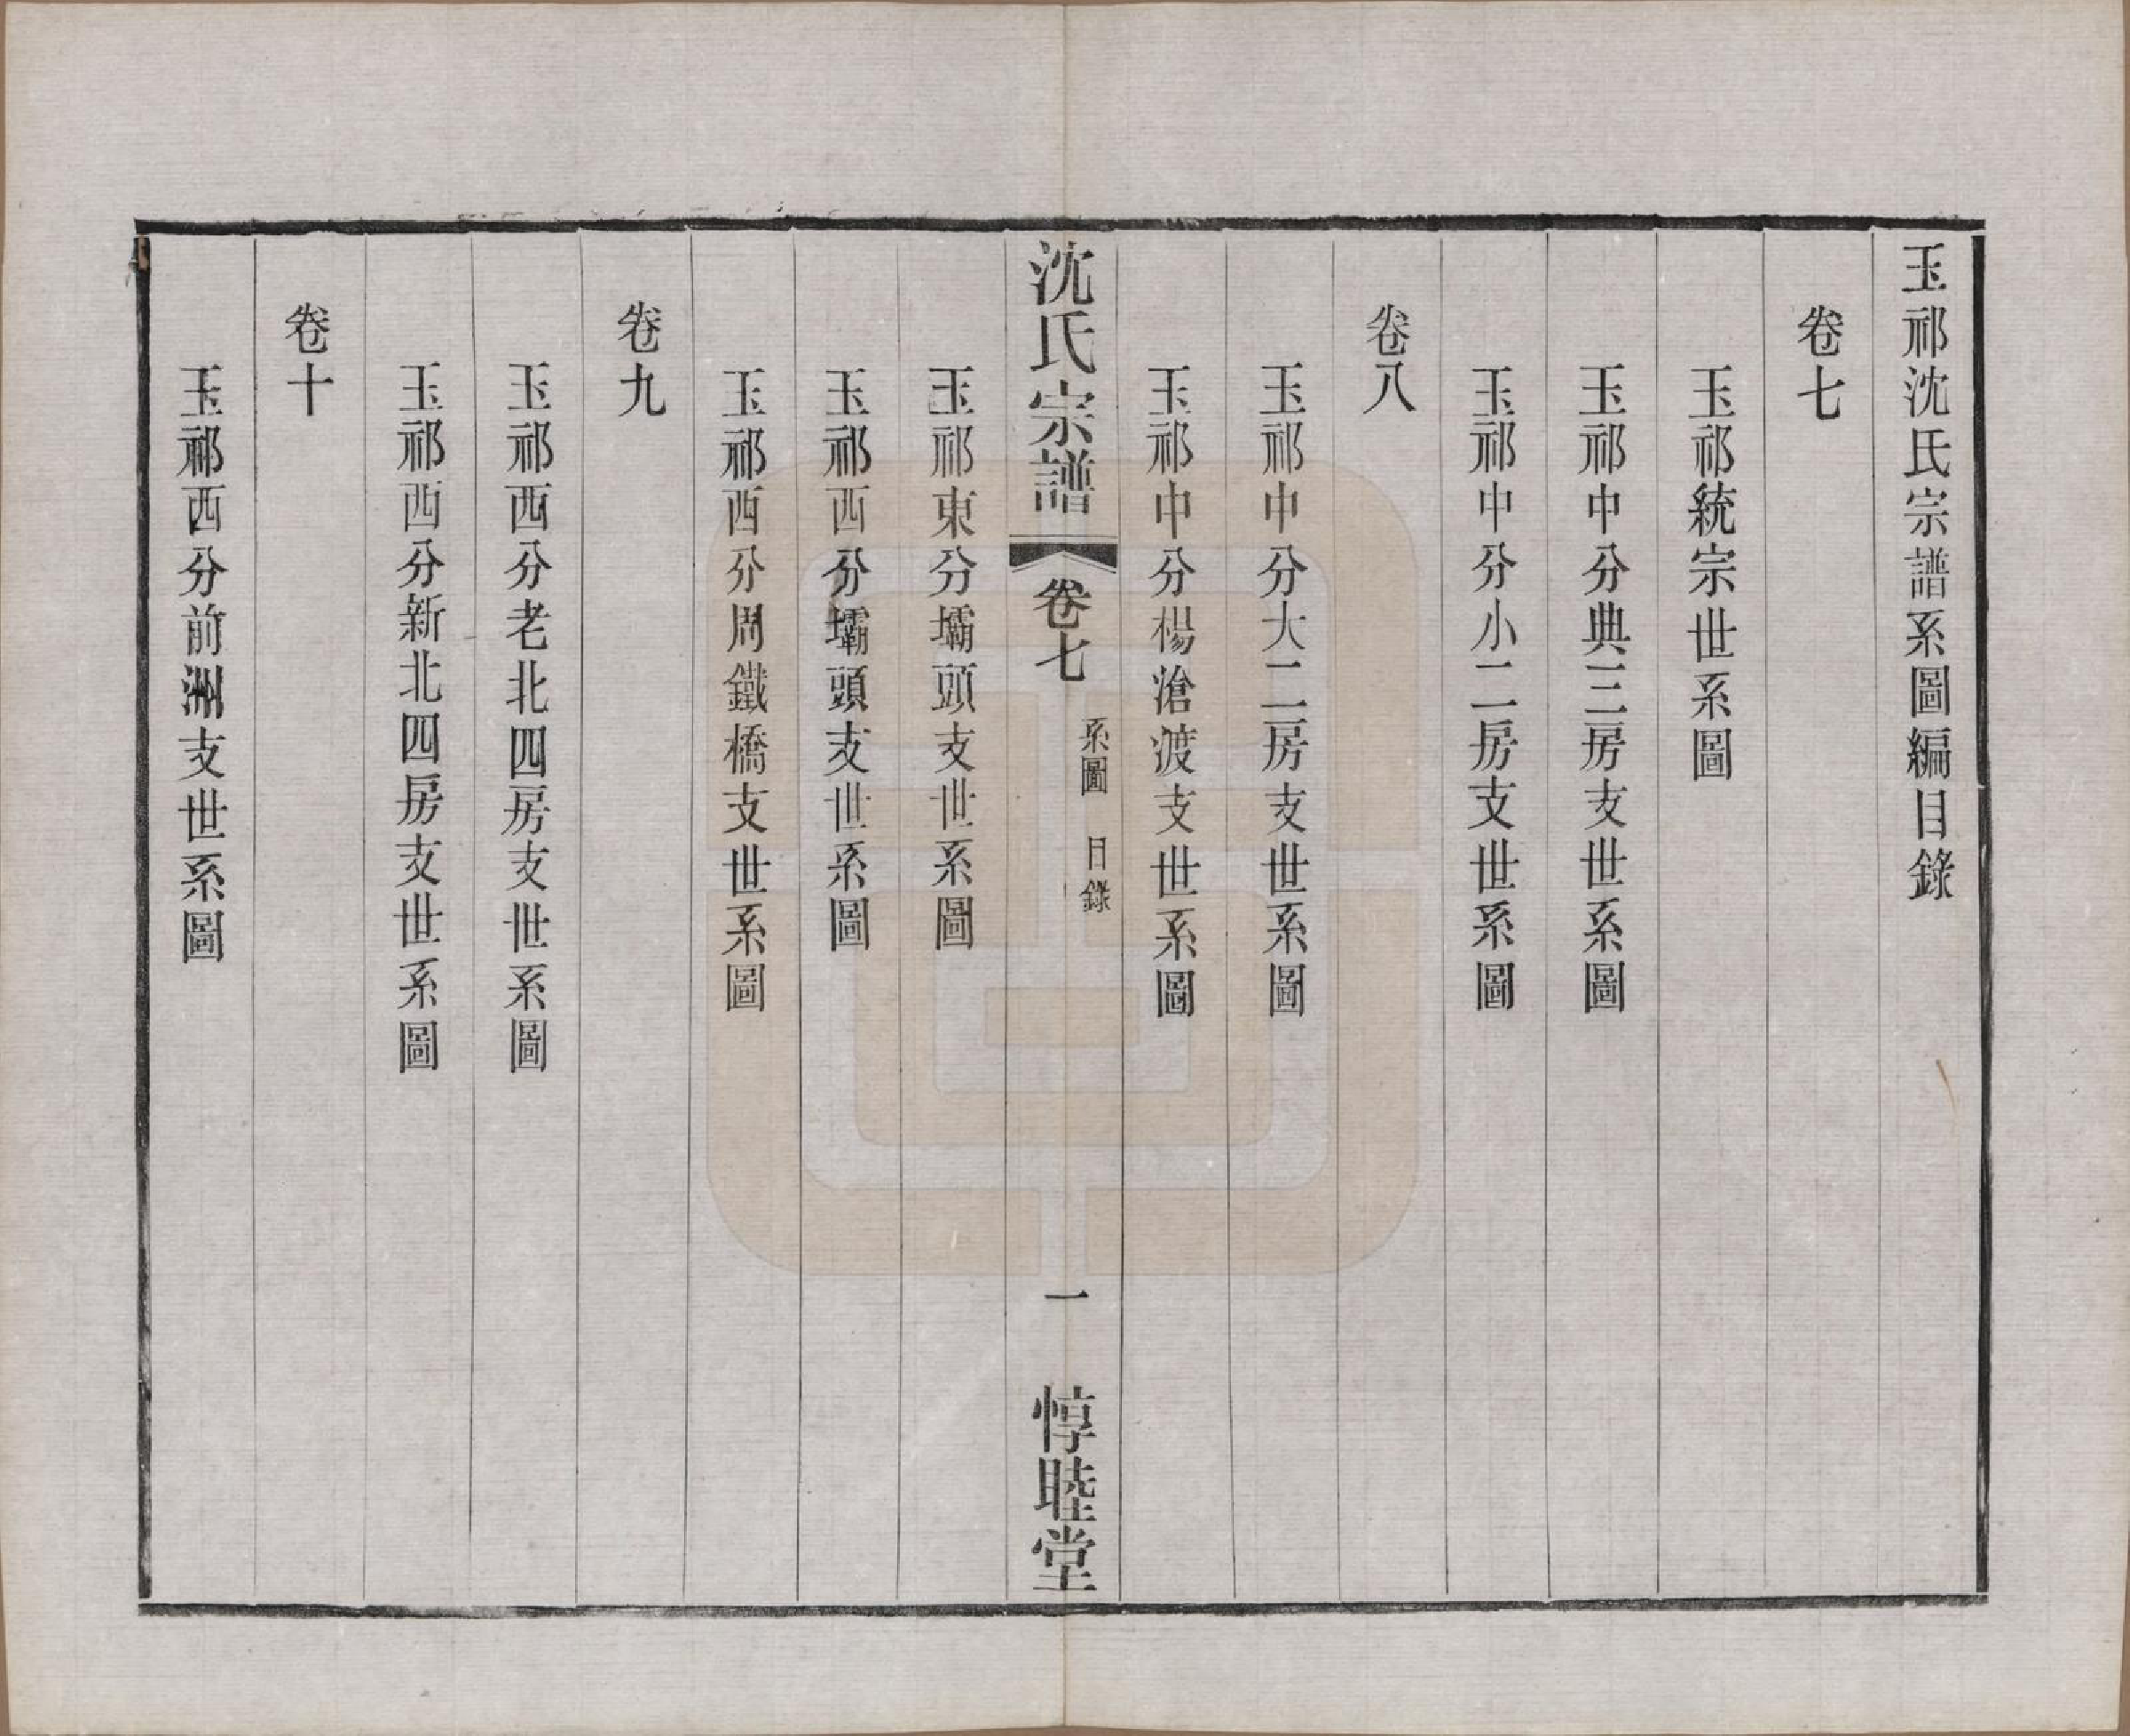 玉祁沈氏宗譜系圖編目錄
卷七
玉祁統宗世系圖
玉祁中分典三房支世系圖
玉祁中分小二房支世系圖
卷八
玉祁中分大二房支世系圖
玉祁中分楊滄渡支世系圖
沈氏宗譜
卷七
系圖 目錄
一
惇睦堂
玉祁東分壩頭支世系圖
玉祁西分壩頭支世系圖
玉祁西分周鐵橋支世系圖
卷九
玉祁西分老北四房支世系圖
玉祁西分新北四房支世系圖
卷十
玉祁西分前洲支世系圖